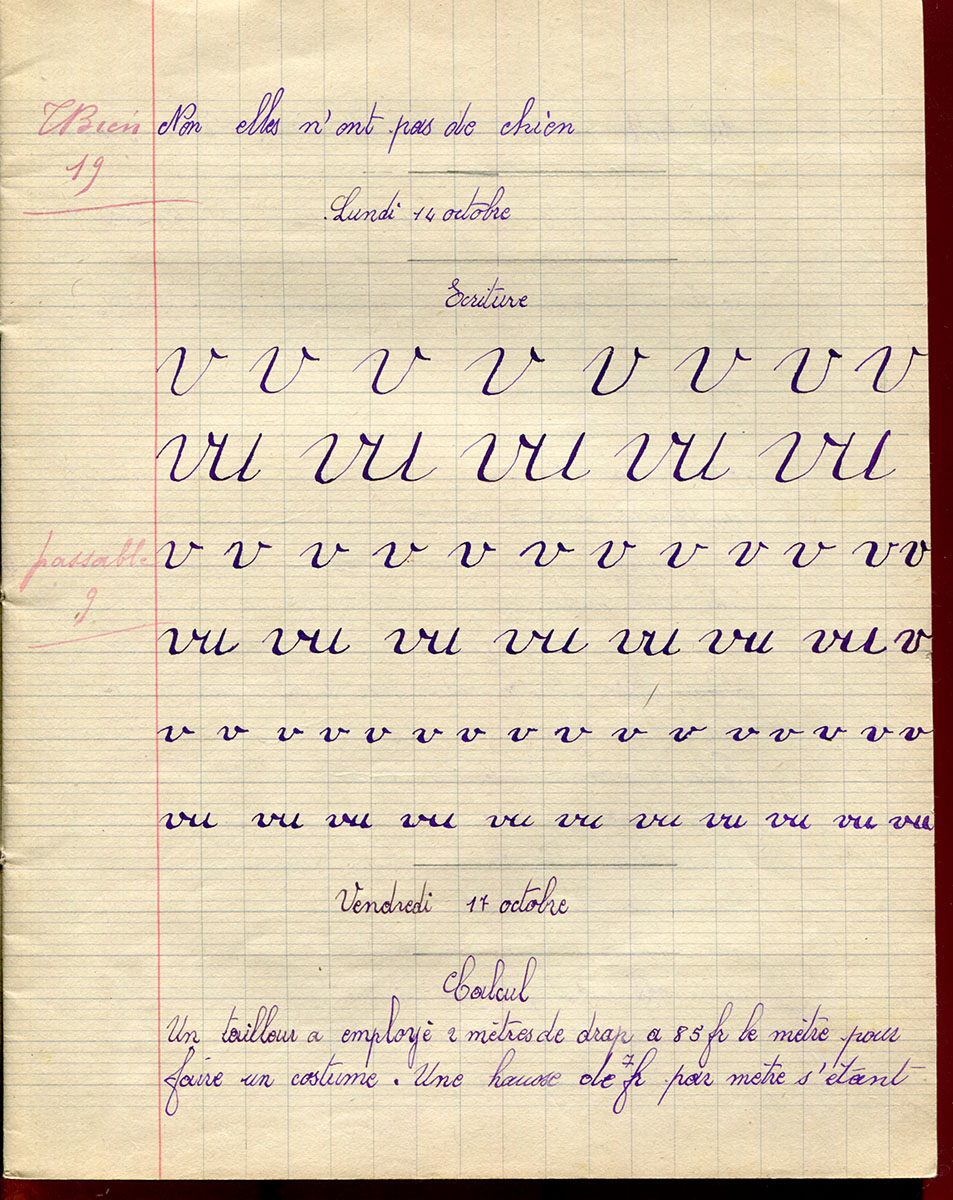 TBien Non elles n'ont pas de chien
19
Lundi 14 octobre
Ecriture
v v v v v v v v
vu vu vu vu vu
passable v v v v v v v v v v v v
9
vu vu vu vu vu vu vu v
v v v v v v v v v v v v v v v v
vu vu vu vu vu vu vu vu vu vu vu
Vendredi 17 octobre
Calcul
Un tailleur a employé 2 mètres de drap a 85 fr le mètre pour
faire un costume. Une hausse de 7 fr par metre s'étant